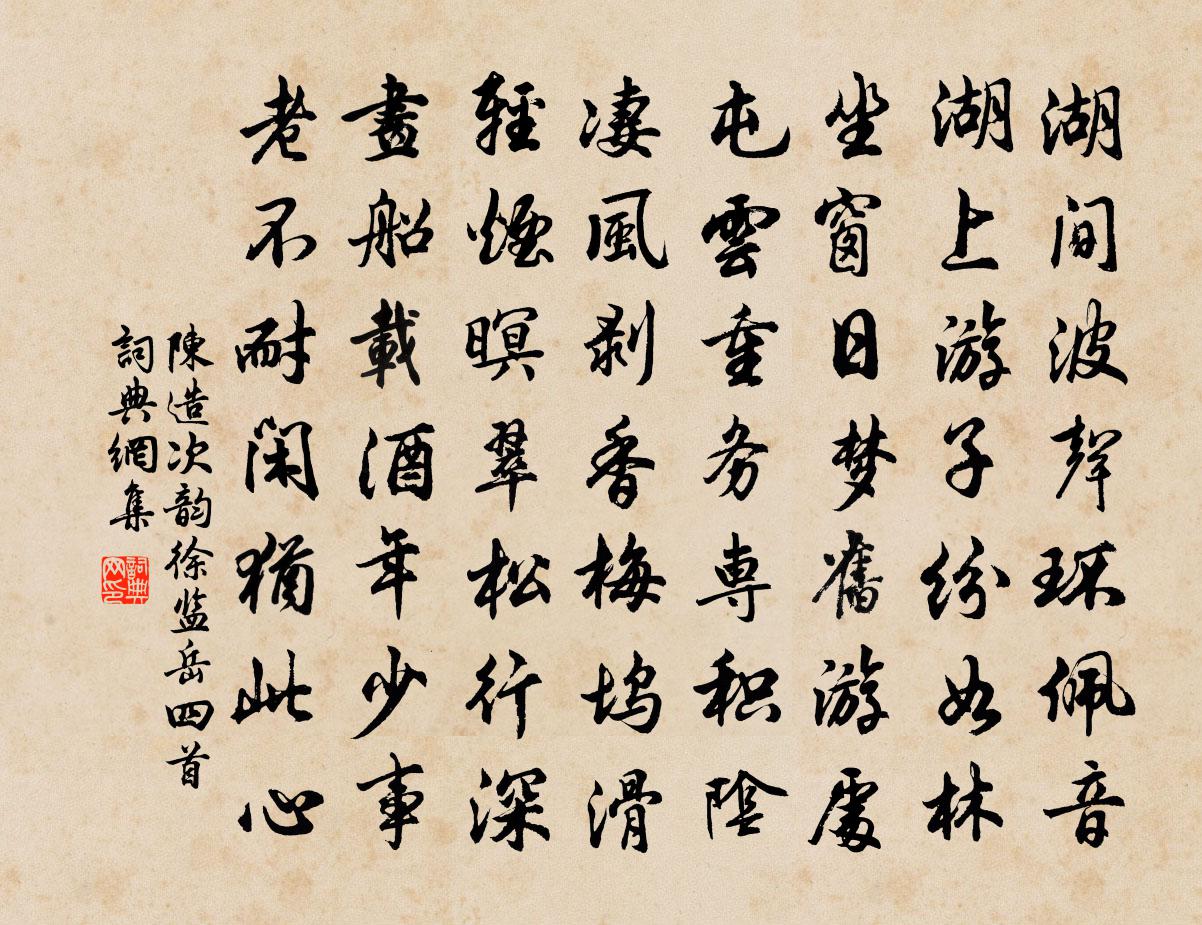 湖间波聲环佩音
湖上游子纷如林
坐窗日梦舊游處
屯雲重务専积陰
凄風剥香梅坞滑
輕煙暝翠松行深
畫船載酒年少事
老不耐闲猶此心
陳造次韵徐监岳四首
詞典網集
詞典网印